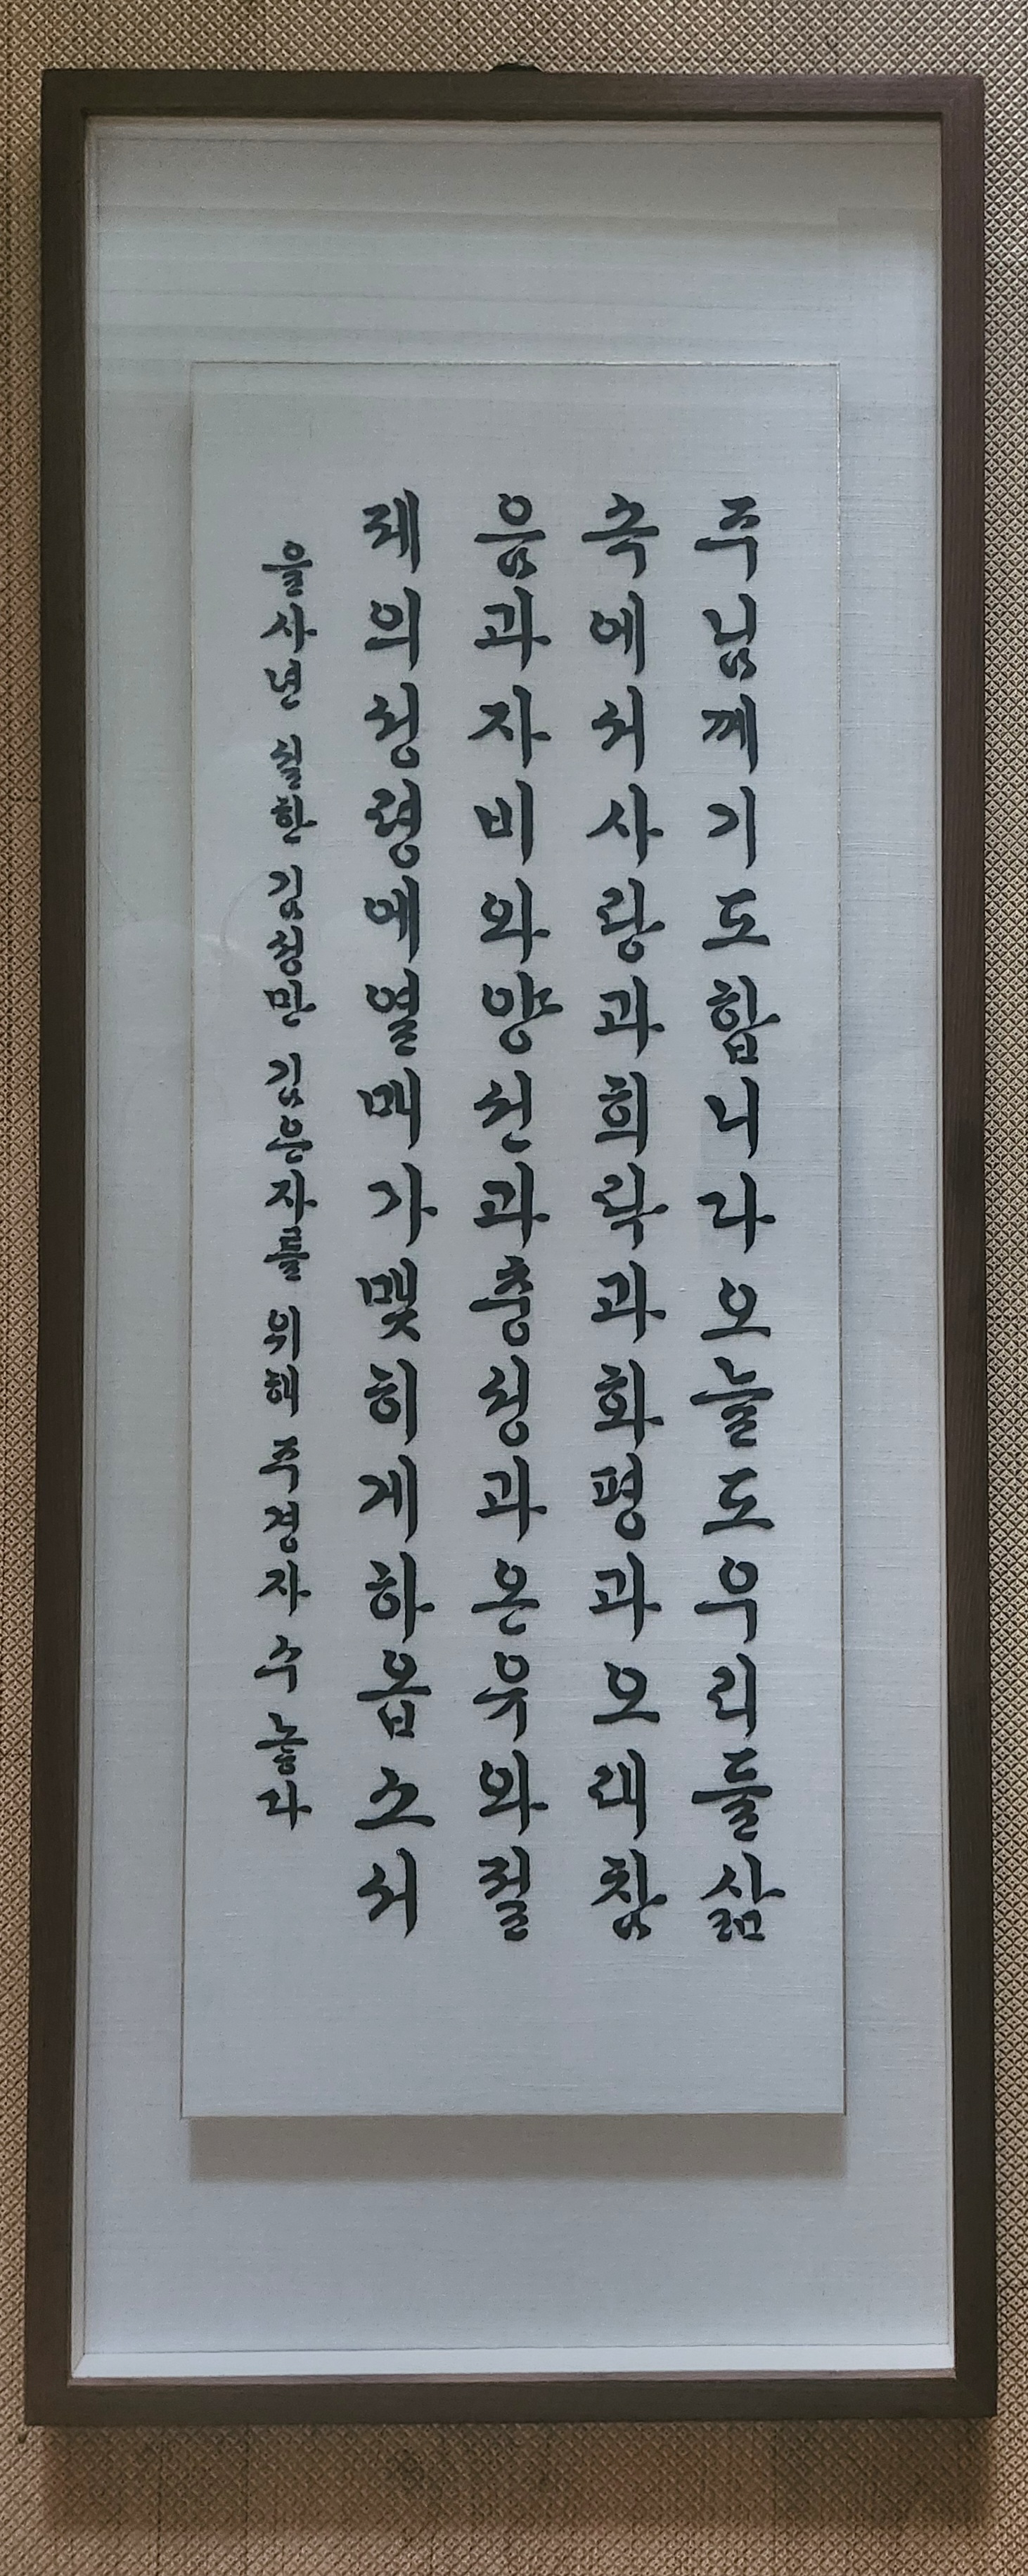 주님께기도합니다오늘도우리들삶
속에서사랑과희락과화평과오래참
음과자비와양선과충성과온유와절
제의성령에열매가맺히게하옵소서
을사년 설한 김성만 김은자를 위해 주경자 수 놓다